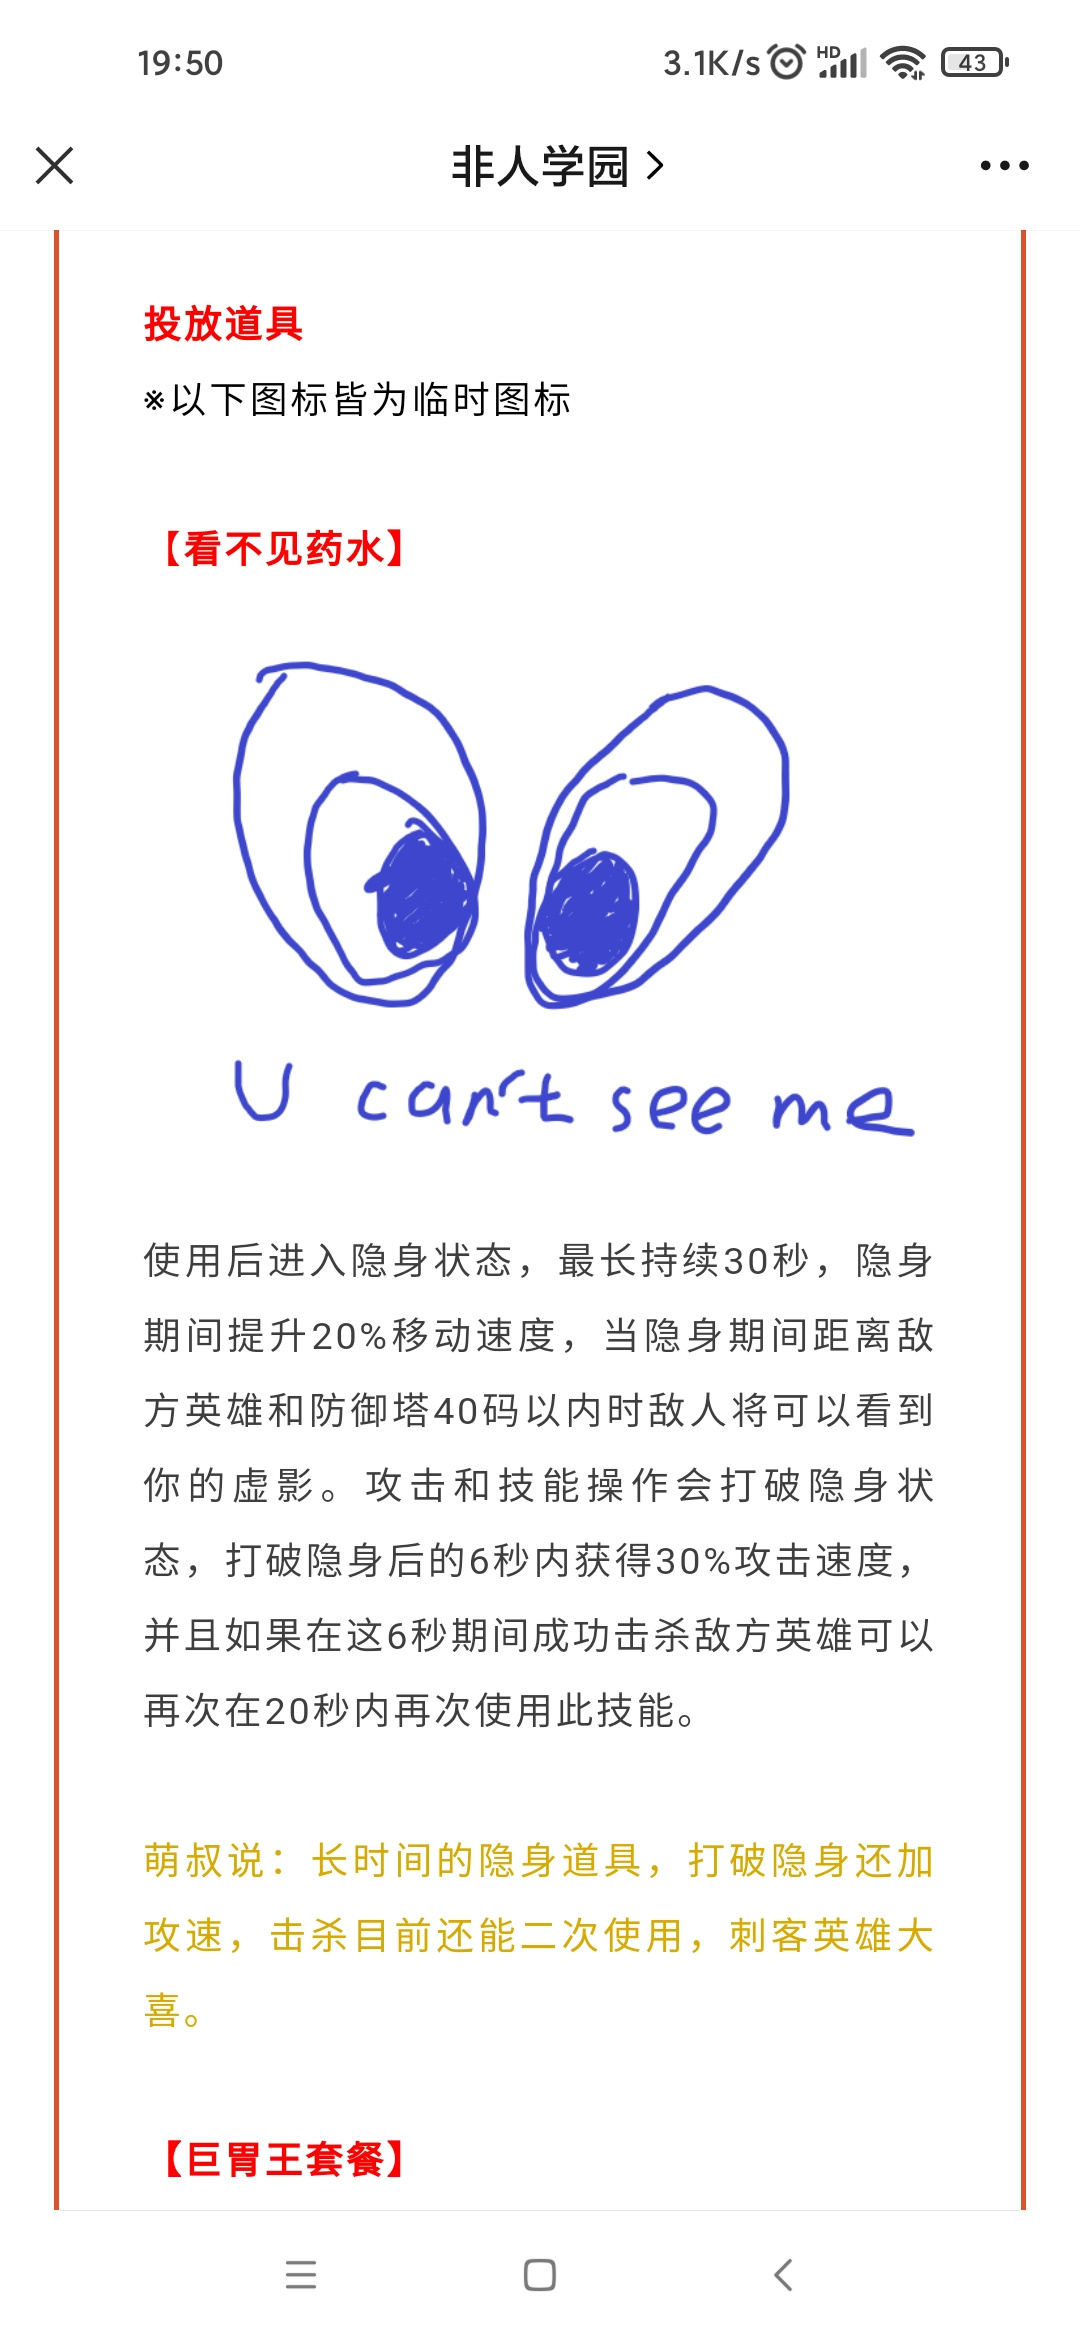 19:50
3.1K/s HD 43
非人学园
投放道具
※以下图标皆为临时图标
【看不见药水】
U can't see me
使用后进入隐身状态，最长持续30秒，隐身
期间提升20%移动速度，当隐身期间距离敌
方英雄和防御塔40码以内时敌人将可以看到
你的虚影。攻击和技能操作会打破隐身状
态，打破隐身后的6秒内获得30%攻击速度，
并且如果在这6秒期间成功击杀敌方英雄可以
再次在20秒内再次使用此技能。
萌叔说：长时间的隐身道具，打破隐身还加
攻速，击杀目前还能二次使用，刺客英雄大
喜。
【巨胃王套餐】